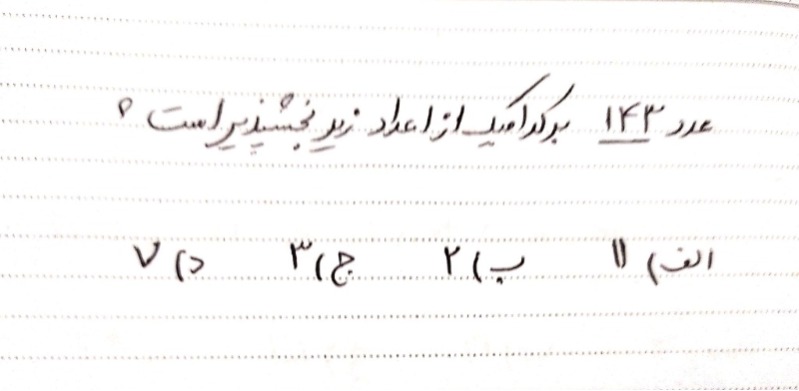 عدد ۱۴۳ بر کدامیک از اعداد زیر بخشپذیر است ؟
الف) ۱۱ ب) ۲ ج) ۳ د) ۷